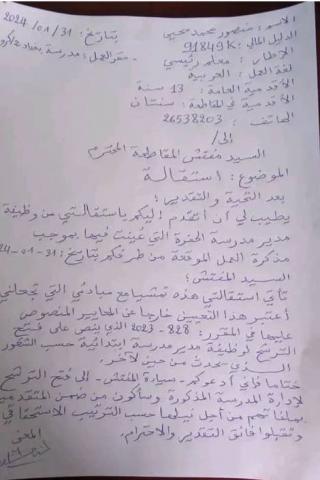 الاسم: منصور محمد يحيى
بتاريخ: 31/01/2024
الدليل المالي: 91849K
الإطار: معلم رئيسي
مقر العمل: مدرسة بغداد
لغة العمل: العربية
الأقدمية العامة: 13 سنة
الأقدمية في المقاطعة: سنتان
الهاتف: 26538203
إلى/
السيد مفتش المقاطعة المحترم
الموضوع: استقالة
بعد التحية والتقدير؛
يطيب لي أن أتقدم إليكم باستقالتي من وظيفة
مدير مدرسة الحفرة التي عُينت فيها بموجب
مذكرة العمل الموقعة من طرفكم بتاريخ: 31-01-24
السيد المفتش؛
تأتي استقالتي هذه تمشيا مع مبادئي التي تجعلني
أعتبر هذا التعيين خارجا عن المعايير المنصوص
عليها في المقرر: 828-2023 الذي ينص على فتح
الترشح لوظيفة مدير مدرسة ابتدائية حسب الشغور
الذي يحدث من حين لآخر.
ختاما فإني أدعوكم - سيادة المفتش - إلى فتح الترشح
لإدارة المدرسة المذكورة وسأكون من ضمن المتقدمين
بملفاتهم من أجل نيلها حسب الترتيب الاستحقاقي
وتقبلوا فائق التقدير والاحترام.
المعني